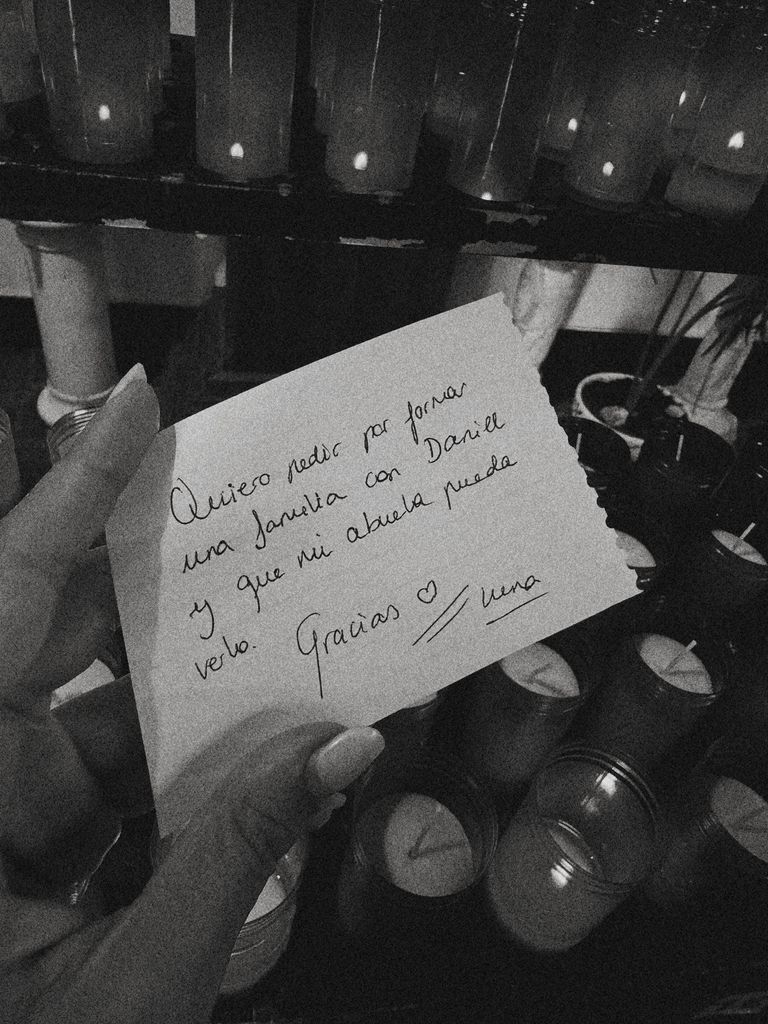 Quiero pedir por formar
una familia con Daniel
y que mi abuela pueda
verlo. Gracias ♡ // nena